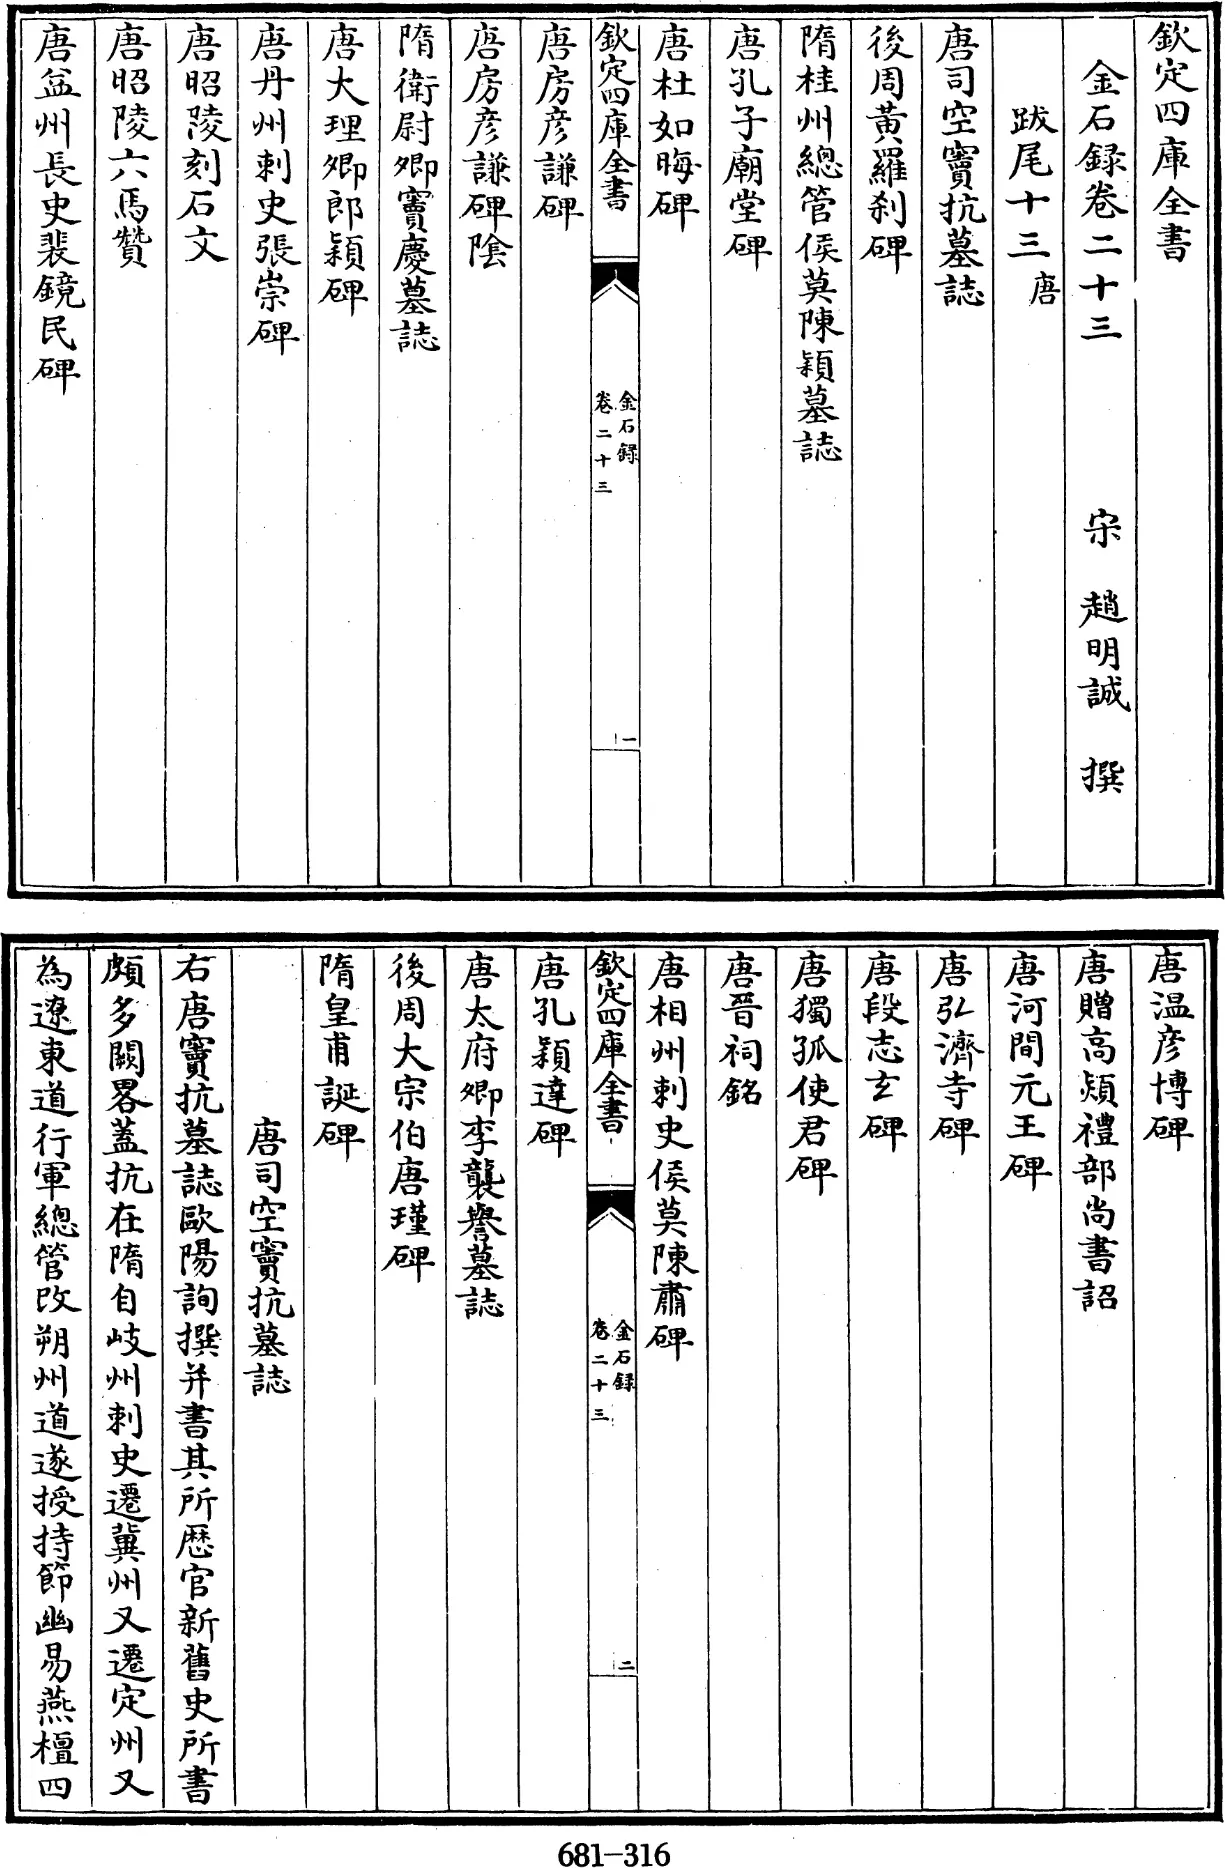 欽定四庫全書
金石録卷二十三 宋 趙明誠 撰
跋尾十三 唐
唐司空竇抗墓誌
後周黃羅刹碑
隋桂州總管侯莫陳穎墓誌
唐孔子廟堂碑
唐杜如晦碑
欽定四庫全書
金石録
卷二十三
一
唐房彦謙碑
唐房彦謙碑陰
隋衛尉卿竇慶墓誌
唐大理卿郎穎碑
唐丹州刺史張崇碑
唐昭陵刻石文
唐昭陵六馬贊
唐益州長史裴鏡民碑
唐温彦博碑
唐贈高熲禮部尚書詔
唐河間元王碑
唐弘濟寺碑
唐段志玄碑
唐獨孤使君碑
唐晉祠銘
唐相州刺史侯莫陳肅碑
欽定四庫全書
金石録
卷二十三
二
唐孔穎達碑
唐太府卿李襲譽墓誌
後周大宗伯唐瑾碑
隋皇甫誕碑
唐司空竇抗墓誌
右唐竇抗墓誌歐陽詢撰并書其所歴官新舊史所書
頗多闕畧蓋抗在隋自岐州刺史遷冀州又遷定州又
為遼東道行軍總管改朔州道遂授持節幽易燕檀四
681-316